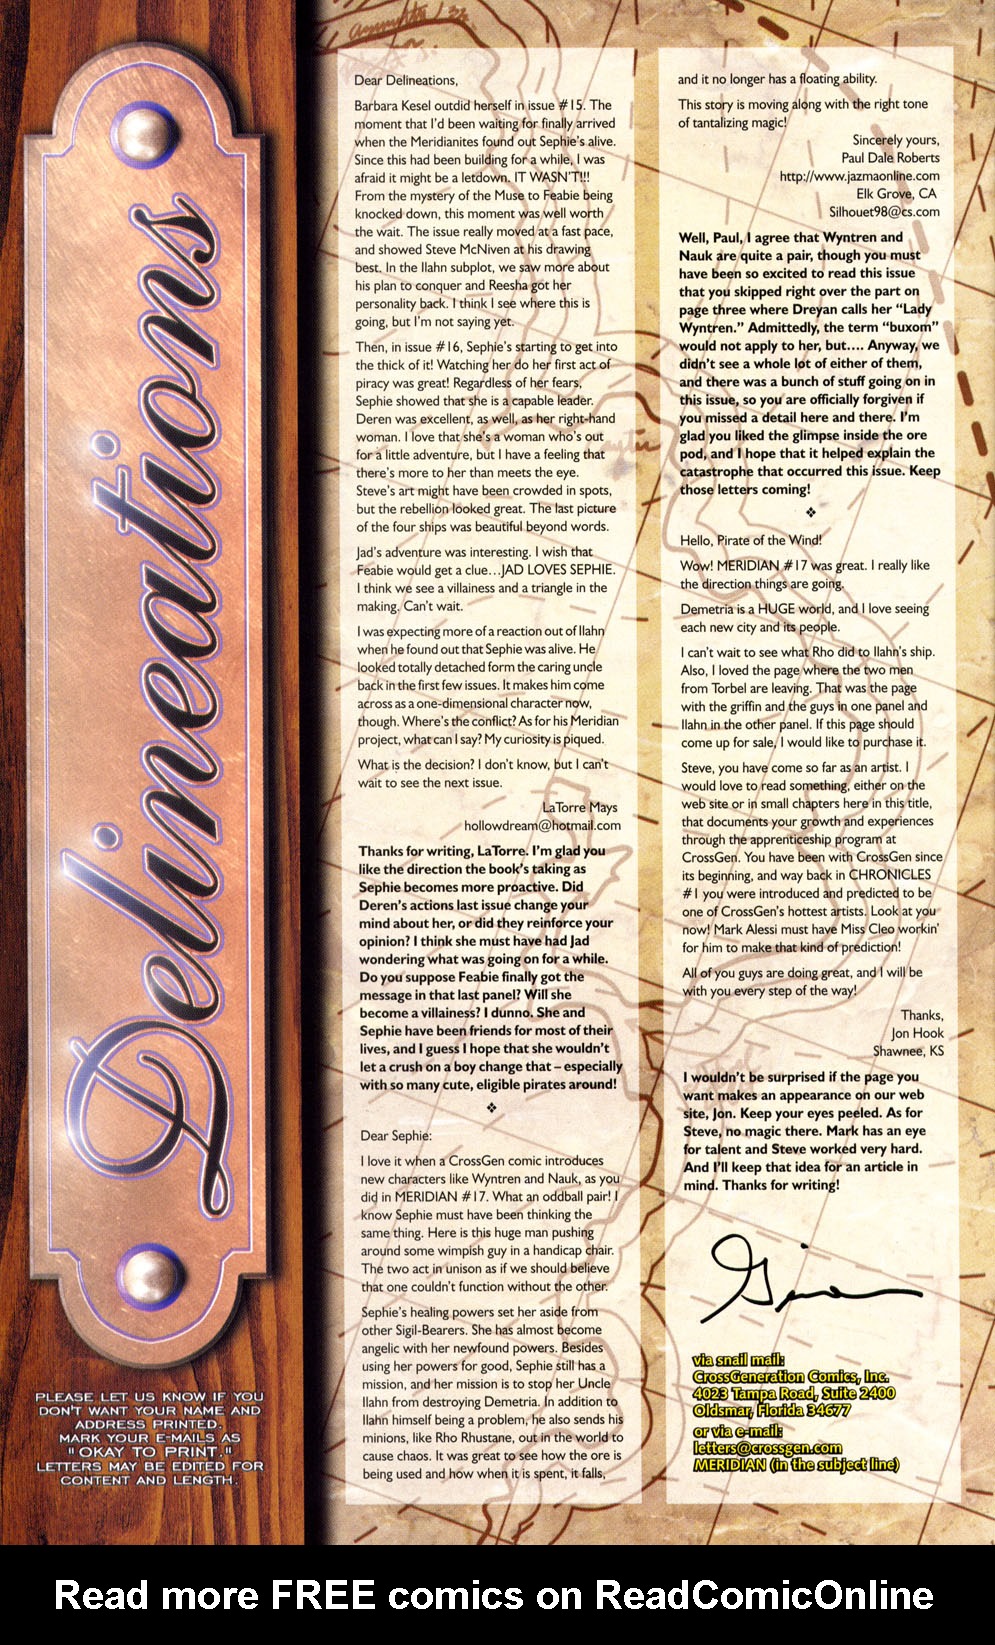 Delineations
PLEASE LET US KNOW IF YOU
DON'T WANT YOUR NAME AND
ADDRESS PRINTED.
MARK YOUR E-MAILS AS
"OKAY TO PRINT."
LETTERS MAY BE EDITED FOR
CONTENT AND LENGTH.
Dear Delineations,
Barbara Kesel outdid herself in issue #15. The
moment that I'd been waiting for finally arrived
when the Meridianites found out Sephie's alive.
Since this had been building for a while, I was
afraid it might be a letdown. IT WASN'T!!!
From the mystery of the Muse to Feabie being
knocked down, this moment was well worth
the wait. The issue really moved at a fast pace,
and showed Steve McNiven at his drawing
best. In the Ilahn subplot, we saw more about
his plan to conquer and Reesha got her
personality back. I think I see where this is
going, but I'm not saying yet.
Then, in issue #16, Sephie's starting to get into
the thick of it! Watching her do her first act of
piracy was great! Regardless of her fears,
Sephie showed that she is a capable leader.
Deren was excellent, as well, as her right-hand
woman. I love that she's a woman who's out
for a little adventure, but I have a feeling that
there's more to her than meets the eye.
Steve's art might have been crowded in spots,
but the rebellion looked great. The last picture
of the four ships was beautiful beyond words.
Jad's adventure was interesting. I wish that
Feabie would get a clue…JAD LOVES SEPHIE.
I think we see a villainess and a triangle in the
making. Can't wait.
I was expecting more of a reaction out of Ilahn
when he found out that Sephie was alive. He
looked totally detached form the caring uncle
back in the first few issues. It makes him come
across as a one-dimensional character now,
though. Where's the conflict? As for his Meridian
project, what can I say? My curiosity is piqued.
What is the decision? I don't know, but I can't
wait to see the next issue.
LaTorre Mays
hollowdream@hotmail.com
Thanks for writing, LaTorre. I'm glad you
like the direction the book's taking as
Sephie becomes more proactive. Did
Deren's actions last issue change your
mind about her, or did they reinforce your
opinion? I think she must have had Jad
wondering what was going on for a while.
Do you suppose Feabie finally got the
message in that last panel? Will she
become a villainess? I dunno. She and
Sephie have been friends for most of their
lives, and I guess I hope that she wouldn't
let a crush on a boy change that – especially
with so many cute, eligible pirates around!
❖
Dear Sephie:
I love it when a CrossGen comic introduces
new characters like Wyntren and Nauk, as you
did in MERIDIAN #17. What an oddball pair! I
know Sephie must have been thinking the
same thing. Here is this huge man pushing
around some wimpish guy in a handicap chair.
The two act in unison as if we should believe
that one couldn't function without the other.
Sephie's healing powers set her aside from
other Sigil-Bearers. She has almost become
angelic with her newfound powers. Besides
using her powers for good, Sephie still has a
mission, and her mission is to stop her Uncle
Ilahn from destroying Demetria. In addition to
Ilahn himself being a problem, he also sends his
minions, like Rho Rhustane, out in the world to
cause chaos. It was great to see how the ore is
being used and how when it is spent, it falls,
and it no longer has a floating ability.
This story is moving along with the right tone
of tantalizing magic!
Sincerely yours,
Paul Dale Roberts
http://www.jazmaonline.com
Elk Grove, CA
Silhouet98@cs.com
Well, Paul, I agree that Wyntren and
Nauk are quite a pair, though you must
have been so excited to read this issue
that you skipped right over the part on
page three where Dreyan calls her "Lady
Wyntren." Admittedly, the term "buxom"
would not apply to her, but…. Anyway, we
didn't see a whole lot of either of them,
and there was a bunch of stuff going on in
this issue, so you are officially forgiven if
you missed a detail here and there. I'm
glad you liked the glimpse inside the ore
pod, and I hope that it helped explain the
catastrophe that occurred this issue. Keep
those letters coming!
❖
Hello, Pirate of the Wind!
Wow! MERIDIAN #17 was great. I really like
the direction things are going.
Demetria is a HUGE world, and I love seeing
each new city and its people.
I can't wait to see what Rho did to Ilahn's ship.
Also, I loved the page where the two men
from Torbel are leaving. That was the page
with the griffin and the guys in one panel and
Ilahn in the other panel. If this page should
come up for sale, I would like to purchase it.
Steve, you have come so far as an artist. I
would love to read something, either on the
web site or in small chapters here in this title,
that documents your growth and experiences
through the apprenticeship program at
CrossGen. You have been with CrossGen since
its beginning, and way back in CHRONICLES
#1 you were introduced and predicted to be
one of CrossGen's hottest artists. Look at you
now! Mark Alessi must have Miss Cleo workin'
for him to make that kind of prediction!
All of you guys are doing great, and I will be
with you every step of the way!
Thanks,
Jon Hook
Shawnee, KS
I wouldn't be surprised if the page you
want makes an appearance on our web
site, Jon. Keep your eyes peeled. As for
Steve, no magic there. Mark has an eye
for talent and Steve worked very hard.
And I'll keep that idea for an article in
mind. Thanks for writing!
Gina
via snail mail:
CrossGeneration Comics, Inc.
4023 Tampa Road, Suite 2400
Oldsmar, Florida 34677
or via e-mail:
letters@crossgen.com
MERIDIAN (in the subject line)
Read more FREE comics on ReadComicOnline